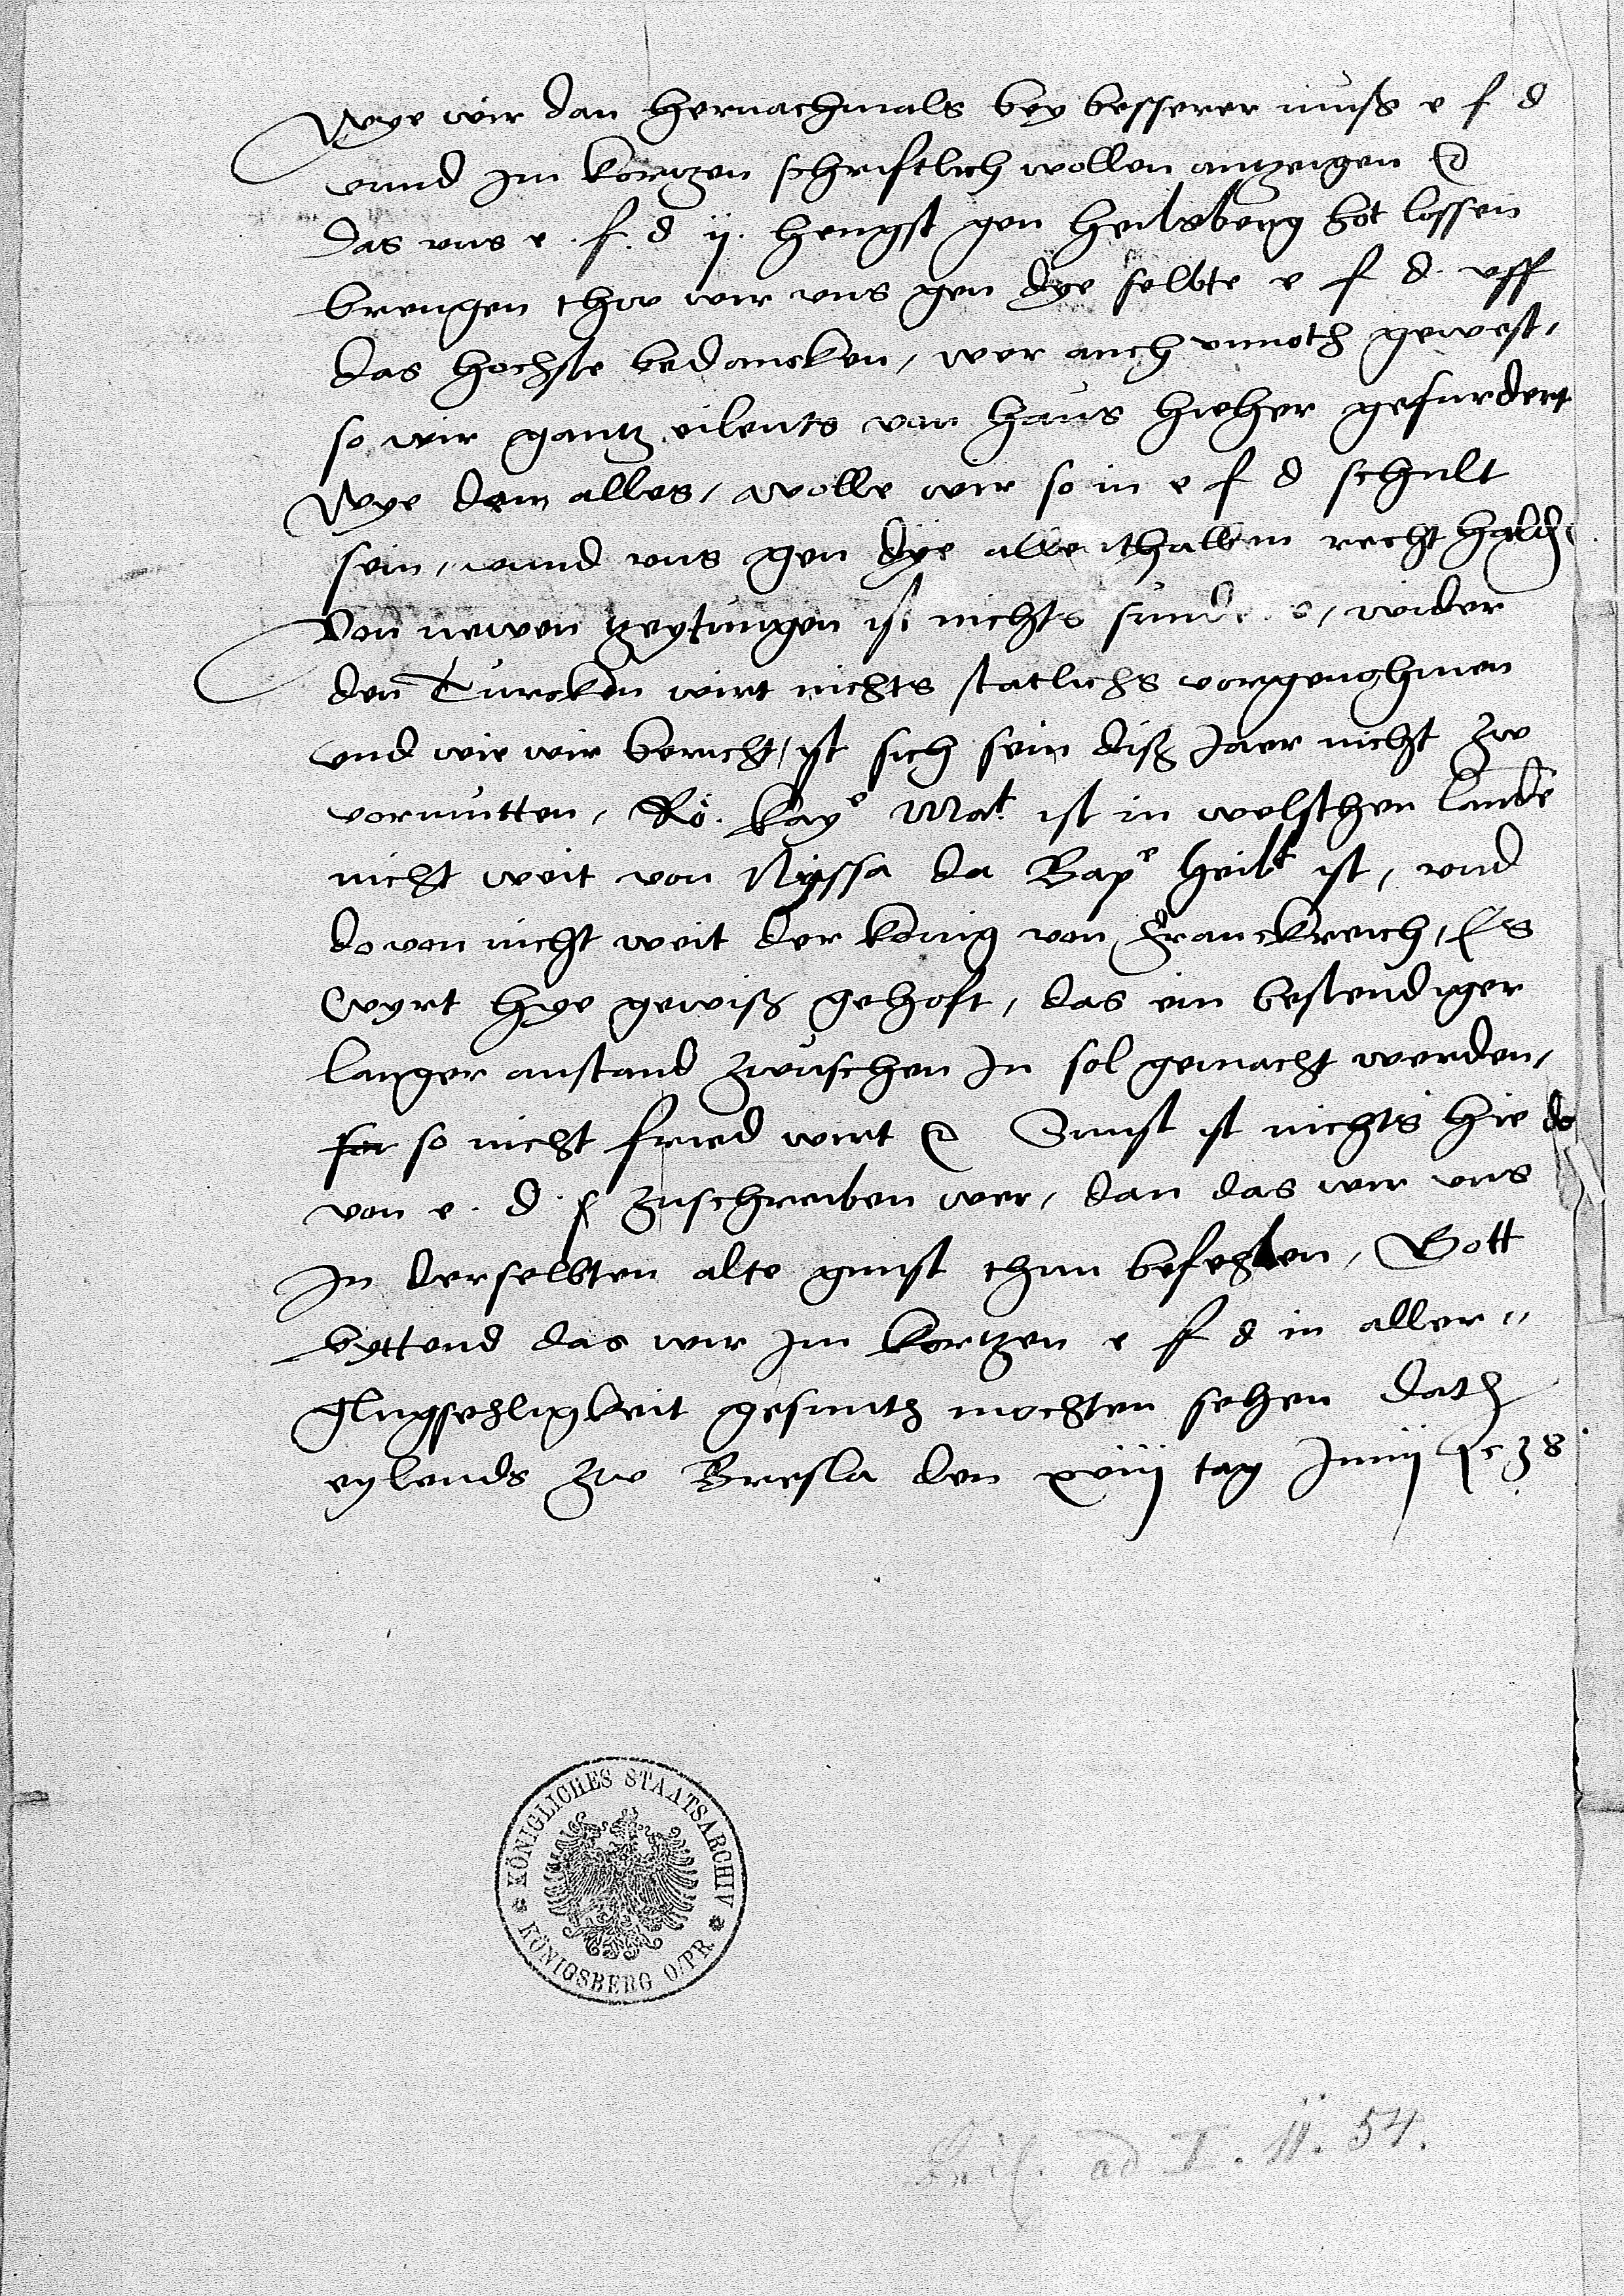 Wye wir dan hernachmals bey besserer muß e f d
vnnd jm kortzen schriftlich wollen antzeigen etc
das vns e. f. d ij. hengst gen heilsberg hot lossen
brengen thw wir vns gen dye selbte e f d. vff
das hochste bedancken, wer auch vnnoth gewest,
so wir gantz eilents von haus hieher gefurdert
Wye dem alles, wolle wir so in e f d schult
sein, vnnd vns gen dye allenthalben recht halden.
Von newen zeytungen ist nichts, wider
den Turcken wirt nichts statlichs vorgenohmen
vnd wie wir bericht, ist sich sein diß Jaer nicht zw
vormutten, Rö. kaye Mat. ist in welschen lande
nicht weit von Nyssa da Bape heilt ist, vnd
do von nicht weit der konig von Franckreich, Es
Wyrt hye gewiß gehoft, das ein bestendiger
langer anstand zwuschen In sol gemacht werden,
so nicht fried wirt etc Sunst ist nichts hie do
von e. d. f zuschreiben wer, dan das wir vns
In derselbten alte gunst thun befehlen, Gott
byttend das wir jm kortzen e f d in aller"
glugsehligkeit gesunth mochten sehen Dath
eylends zw Bresla den xviij tag Junij 38
KÖNIGLICHES STAATSARCHIV
KÖNIGSBERG O/PR.
ad I. II. 54.